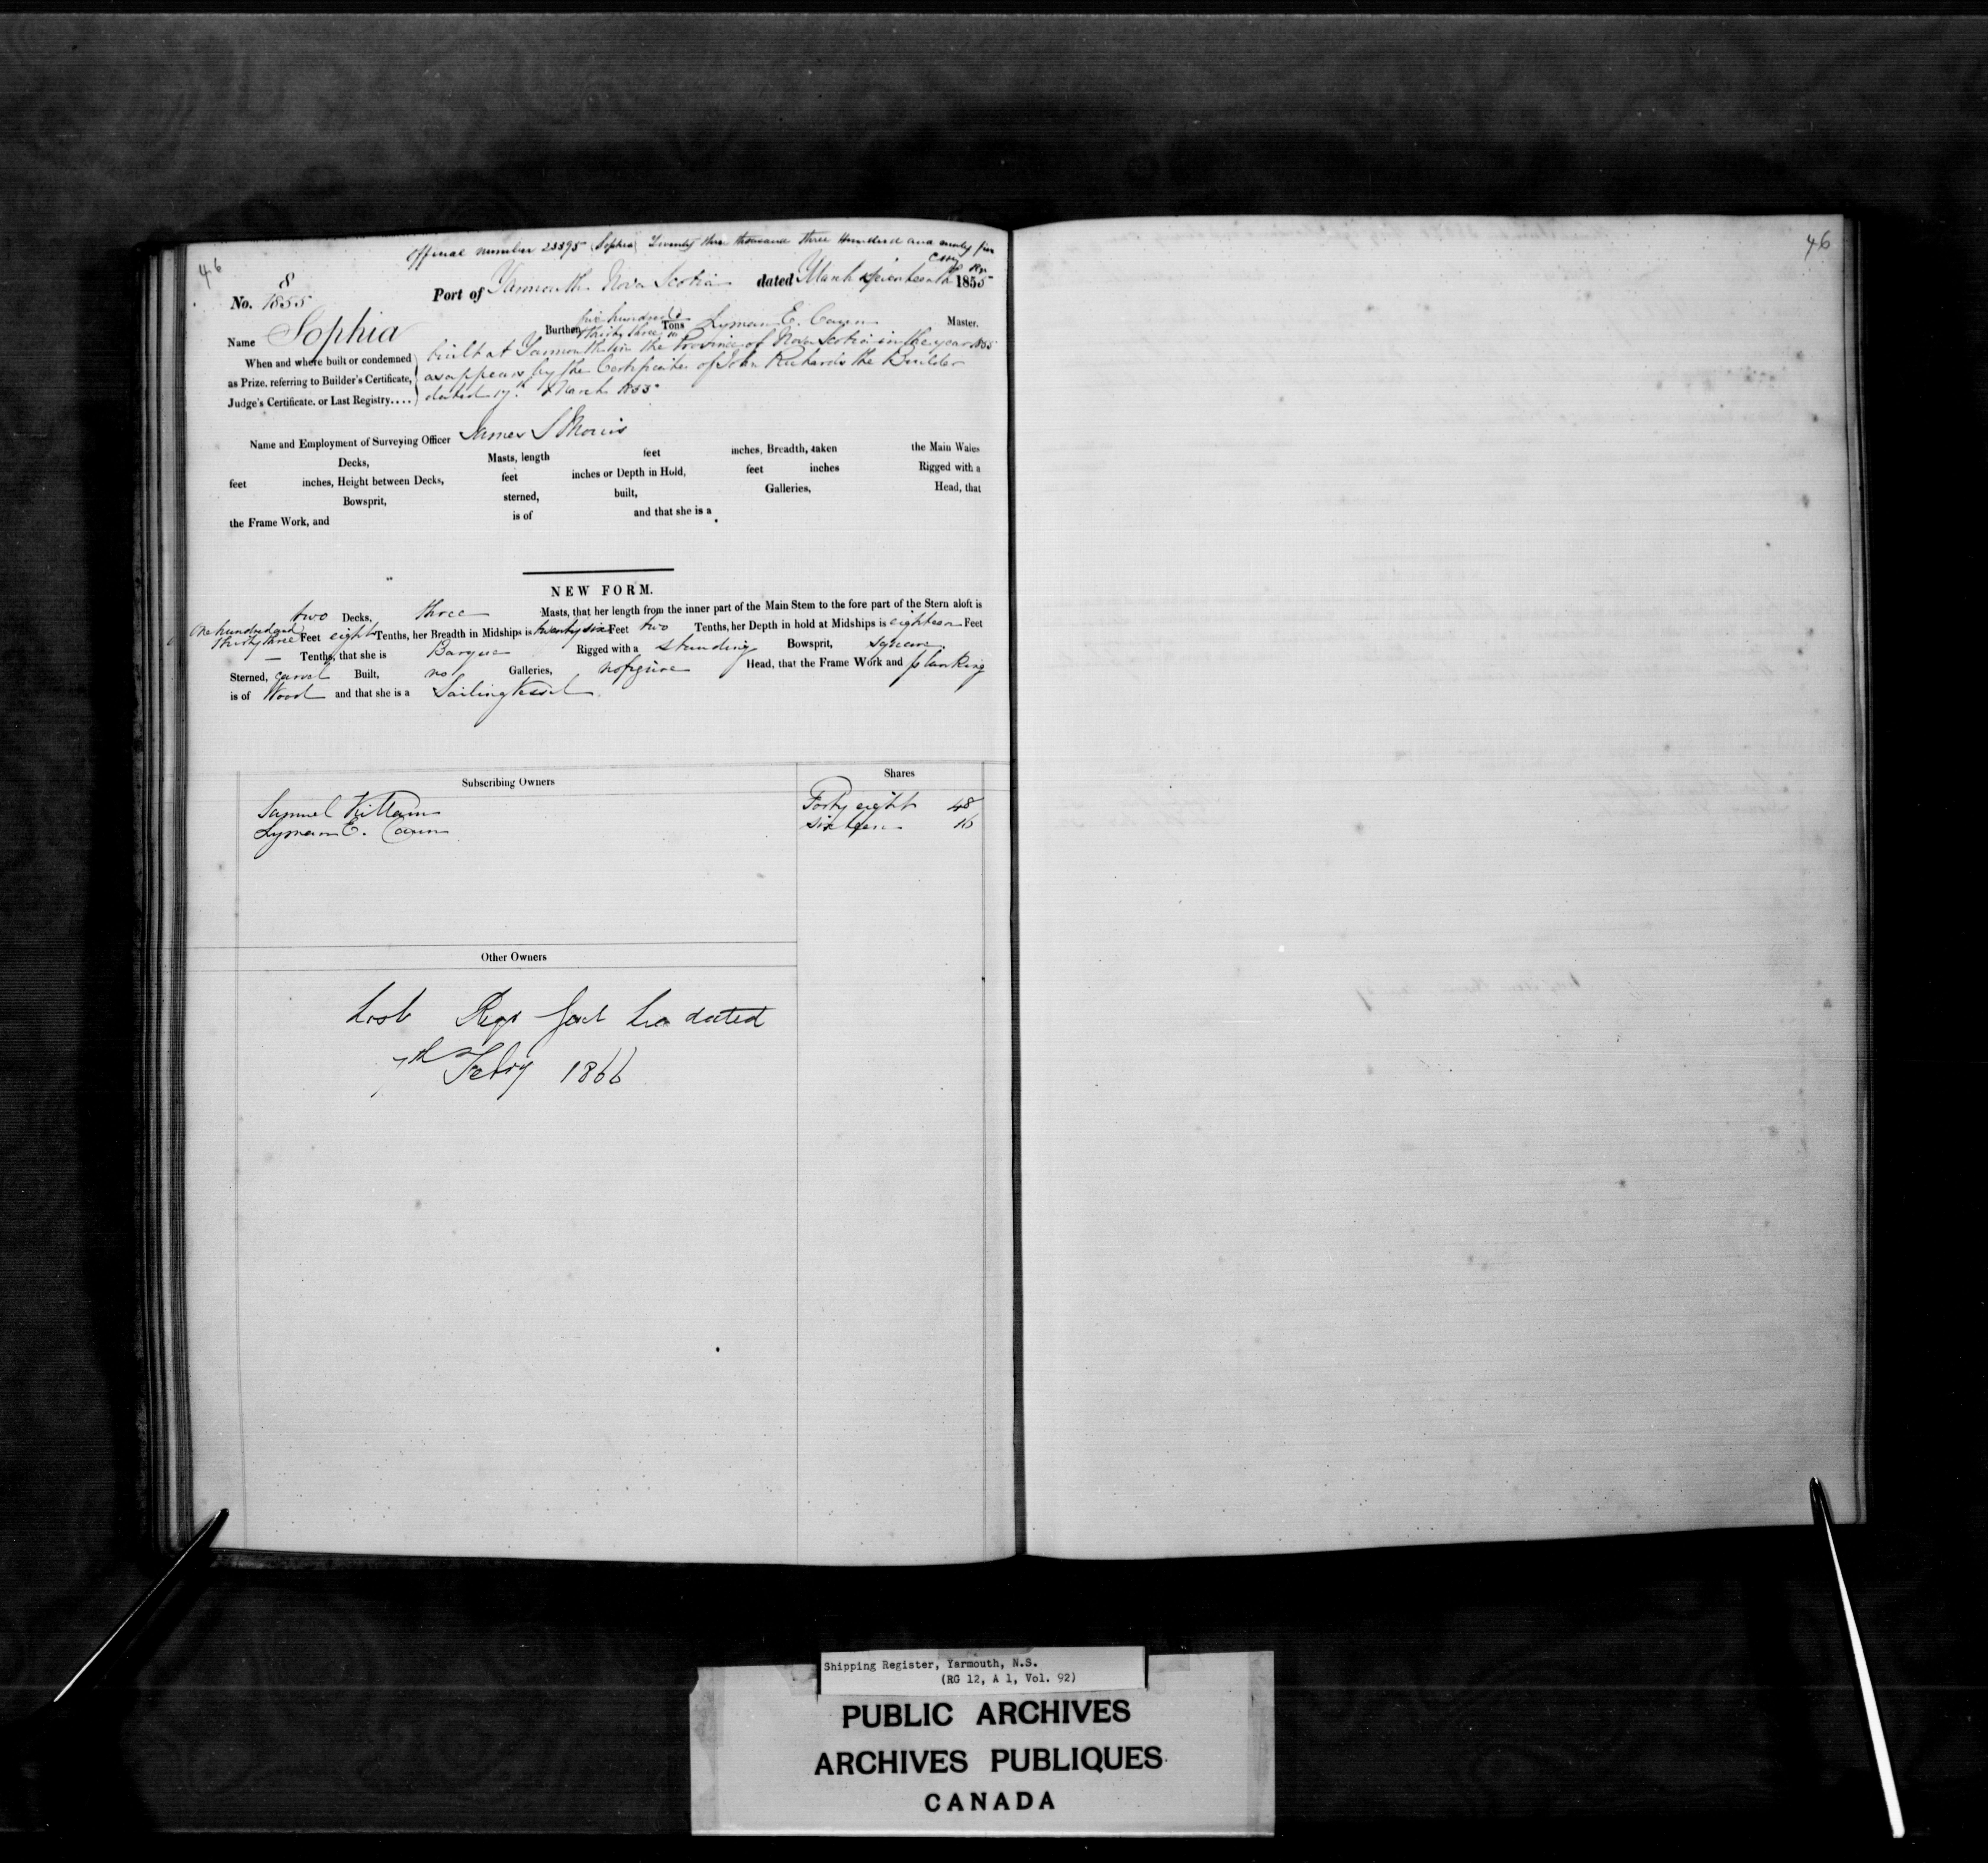 46
Official number 23395 (Sophia) Twenty three thousand three Hundred and ninety five
8
No. 1855
Port of Yarmouth Nova Scotia dated March seventeenth 1855
Name Sophia Burthen five hundred & thirty three Tons Lyman E. Cann Master.
When and where built or condemned
as Prize, referring to Builder's Certificate,
Judge's Certificate, or Last Registry....
built at Yarmouth in the Province of Nova Scotia in the year 1855
as appears by the Certificate of John Richards the Builder
dated 17th March 1855
Name and Employment of Surveying Officer James S Morris
Decks, Masts, length feet inches, Breadth, taken the Main Wales
feet inches, Height between Decks, feet inches or Depth in Hold, feet inches Rigged with a
Bowsprit, sterned, built, Galleries, Head, that
the Frame Work, and is of and that she is a
NEW FORM.
two Decks, three Masts, that her length from the inner part of the Main Stem to the fore part of the Stern aloft is
One hundred and thirty three Feet eight Tenths, her Breadth in Midships is twenty six Feet two Tenths, her Depth in hold at Midships is eighteen Feet
— Tenths, that she is Barque Rigged with a standing Bowsprit, square
Sterned, carvel Built, no Galleries, no figure Head, that the Frame Work and planking
is of Wood and that she is a Sailing Vessel
Subscribing Owners Shares
Samuel Killam Forty eight 48
Lyman E. Cann sixteen 16
Other Owners
Lost dated
7th Feby 1866
46
Shipping Register, Yarmouth, N.S.
(RG 12, A 1, Vol. 92)
PUBLIC ARCHIVES
ARCHIVES PUBLIQUES
CANADA